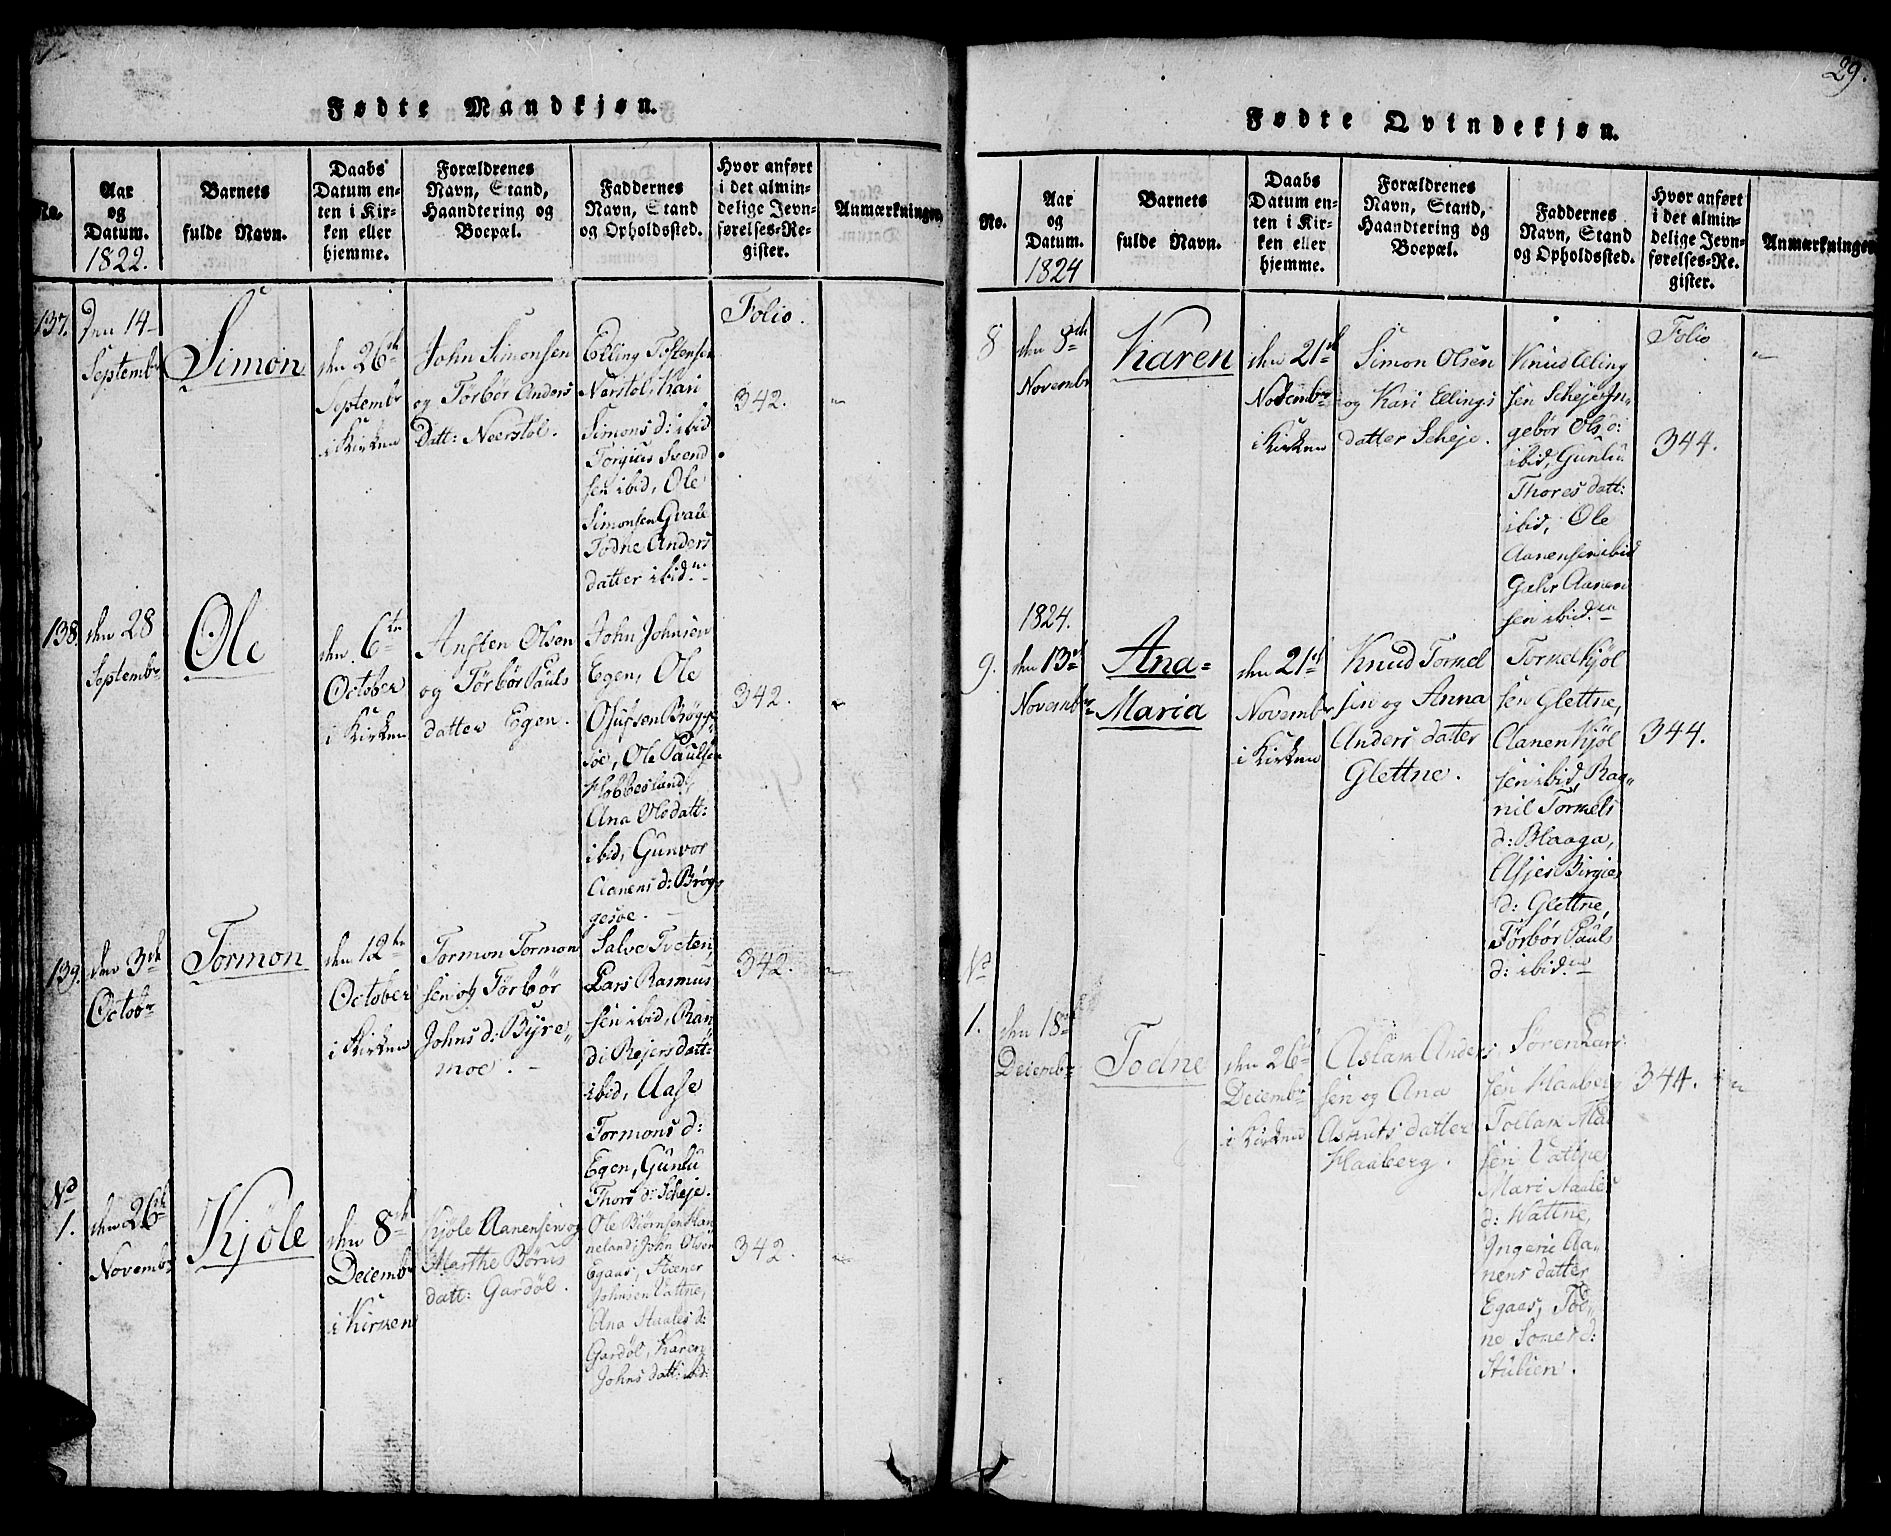 29.
Fødte Mandkjøn.
No.
Aar
og
Datum.
1822.
Barnets
fulde Navn.
Daabs
Datum en-
ten i Kir-
ken eller
hjemme.
Forældrenes
Navn, Stand,
Haandtering og
Boepæl.
Faddernes
Navn, Stand
og Opholdssted.
Hvor anført
i det almin-
delige Jevn-
førelses-Re-
gister.
Anmærkninger.
137.
Den 14
Septembr
Simon
den 26de
Septembr
i Kirken
John Simonsen
og Tørbør Anders
Datt: Neerstøl.
Elling Tostensen
Nerstøl, Kari
Simons d: ibid
Torgius Svend
sen ibid, Ole
Simonsen
Todne Anders
datter ibid.
Folio.
342.
138.
den 28
Septembr
Ole
den 6te
October
i Kirken
Ansten Olsen
og Tørbør Pauls
datter Egen.
John Johnsen
Egen, Ole
Olufsen Brøgge
soe, Ole Paulsen
Hobbesland,
Ana Olsdatt:
ibid, Gunvor
Aanens d: Brøg
gesoe.
342.
139.
den 3de
Octobr
Tormon
den 12te
October
i Kirken
Tormon Tormon
sen og Tørbør
Johns d: Byre„
moe.
Salve Tveten,
Lars Rasmus
sen ibid, Ran
di Rejersdatt:
ibid, Aase
Tormons d:
Egen, Gunlu
Thors d: Scheje.
342.
No
1.
den 26de
Novembr
Kjøle
den 8de
Decembr
i Kirken
Kjøle Aanensen og
Marthe Børus
datt: Gardøl.
Ole Biørnsen Han
neland, John Olsen
Egaas,
Johnsen Vattne,
Ana Staales d:
Gardøl, Karen
Johns datt: ibid:
342.
Fødte Qvindekjøn.
No.
Aar
og
Datum.
1824
Barnets
fulde Navn.
Daabs
Datum en-
ten i Kir-
ken eller
hjemme.
Forældrenes
Navn, Stand,
Haandtering og
Boepæl.
Faddernes
Navn, Stand
og Opholdssted.
Hvor anført
i det almin-
delige Jevn-
førelses-Re-
gister.
Anmærkninger
8
den
Novembr
Karen
den 21de
Novembr
i Kirken
Simon Olsen
og Kari Ellings
datter Scheje.
Knud Elling
sen Scheje, In„
gebør Ols d:
ibid, Gunlu
Thores datt:
ibid, Ole
Aanensen ibid
Aanen
sen ibid.
Folio
344.
1824.
9.
den 13de
Novembr
Ana=
Maria
den 21de
Novembr
i Kirken
Knud Tormod
sen og Anna
Anders datter
Glettne.
Tormod Kjøl
sen Glettne,
Aanen Kjøl
sen ibid, Rag„
nil Tormods
d: Blaaga,
Birgies
d: Glettne,
Tørbør Pauls
d: ibid.
344.
No
1.
den 18de
Decembr
Todne
den 26de
Decembr
i Kirken
Aslak Anders
sen og Ana
Asluts datter
Haaberg.
Søren Lars
sen Haaberg
Tollak
sen Vattne
Mari Staales
d: Wattne,
Ingerie Aa„
nens datter
Egaas, Tod„
ne d:
Stulien.
344.